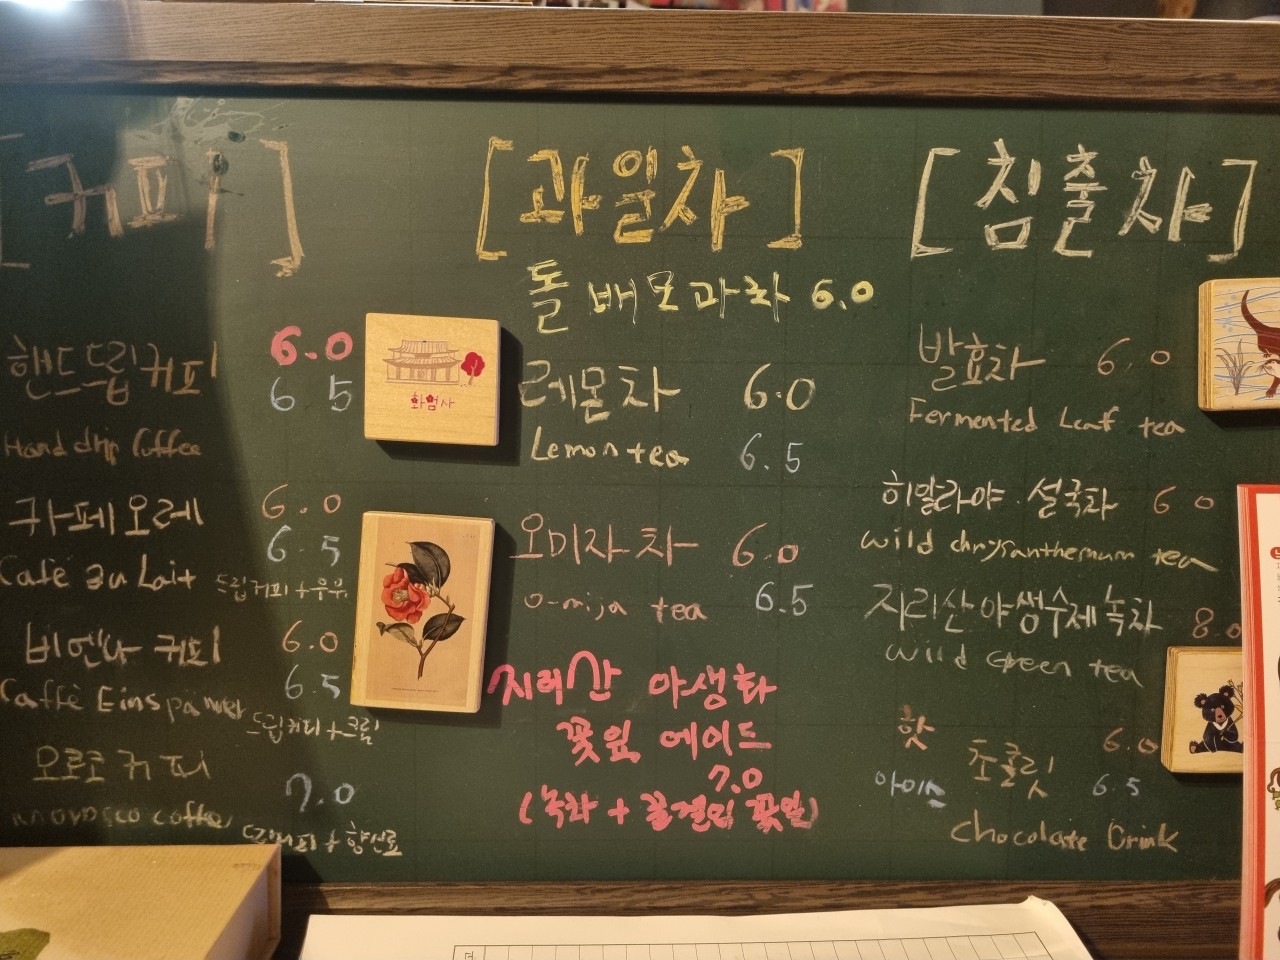 [커피]
핸드드립커피 6.0
6.5
Hand drip Coffee
카페오레 6.0
6.5
Cafe au Lait 드립커피+우유
비엔나 커피 6.0
6.5
Caffè Einspänner 드립커피+크림
모로코커피 7.0
morocco coffee
화엄사
[과일차]
돌배모과차 6.0
레몬차 6.0
Lemon tea 6.5
오미자차 6.0
o-mija tea 6.5
지리산 야생화
꽃잎 에이드
7.0
(녹차 + 꽃잎)
[침출차]
발효차 6.0
Fermented Leaf tea
히말라야 설국차 6.0
wild chrysanthemum tea
지리산야생수제녹차 8.0
wild Green tea
핫 6.0
초콜릿
아이스 6.5
chocolate Drink